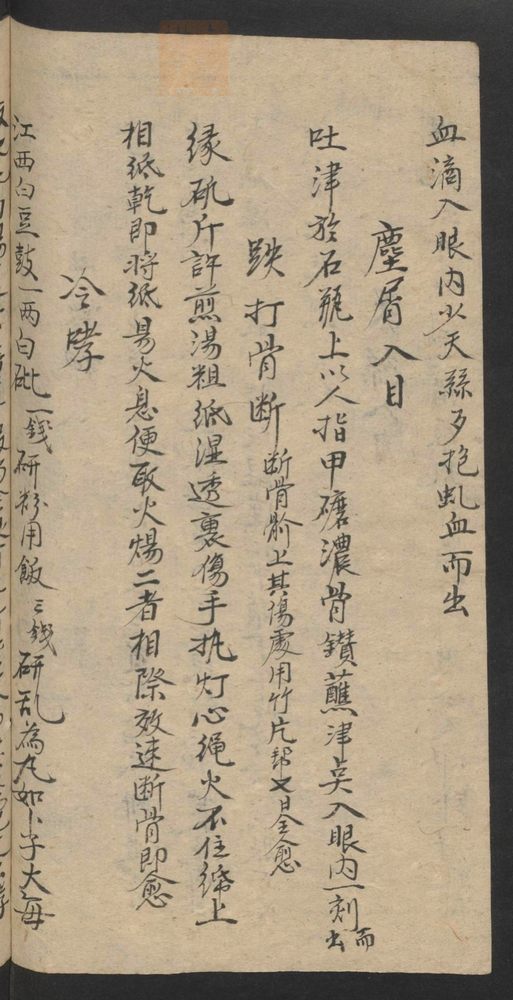 血滴入眼内少天絲夕抱虬血而出
塵屑入目
吐津於石甁上以人指甲磨濃骨鑚蘸津㸃入眼内一刻而出
跌打骨断 断骨 上其傷處用竹片 全愈
緑矾斤許煎湯粗紙湿透裹傷手执灯心绳火不住 上
相紙乾即将紙易火息便取火煬二者相際效速断骨即愈
冷哮
江西白豆鼓一两白砒一錢研粉用飯三錢研乱為丸如卜子大每